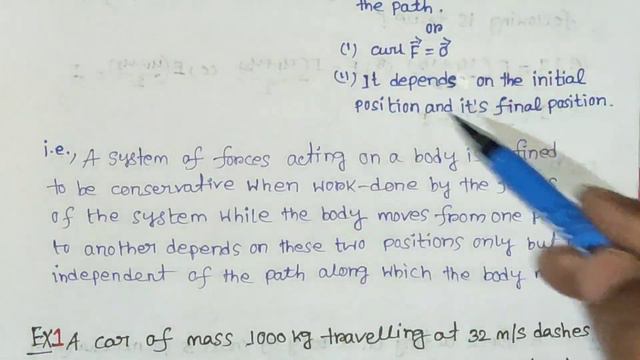 the path.
or
(i) curl F⃗ = 0⃗
(ii) It depends on the initial
position and it's final position.
i.e., A system of forces acting on a body is
to be conservative when work-done by the
of the system while the body moves from one
to another depends on these two positions only but
independent of the path along which the body
EX1 A car of mass 1000 kg travelling at 32 m/s dashes